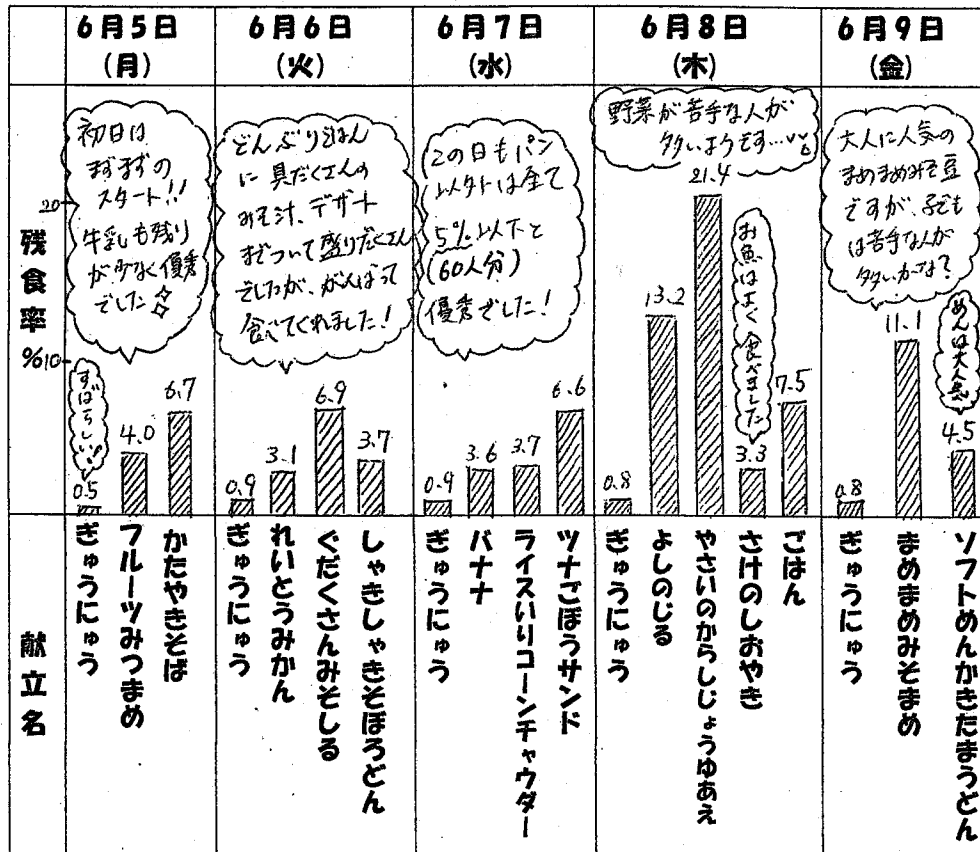 6月5日
(月)
6月6日
(火)
6月7日
(水)
6月8日
(木)
6月9日
(金)
残食率
%
20
10
初日は
まずまずの
スタート!!
牛乳も残り
が少なく優秀
でした☆
すばらしい!
0.5
4.0
6.7
どんぶりごはん
に具だくさんの
みそ汁、デザート
までついて盛りだくさん
でしたが、がんばって
食べてくれました!
0.9
3.1
6.9
3.7
この日もパン
以外は全て
5%以下と
(60人分)
優秀でした!
0.9
3.6
3.7
6.6
野菜が苦手な人が
多いようです…
0.8
13.2
21.4
お魚はよく食べました
3.3
7.5
大人に人気の
まめまめみそ豆
ですが、子ども
は苦手な人が
多いかな?
0.8
11.1
めんは大人気
4.5
献立名
ぎゅうにゅう
フルーツみつまめ
かたやきそば
ぎゅうにゅう
れいとうみかん
ぐだくさんみそしる
しゃきしゃきそぼろどん
ぎゅうにゅう
バナナ
ライスいりコーンチャウダー
ツナごぼうサンド
ぎゅうにゅう
よしのじる
やさいのからしじょうゆあえ
さけのしおやき
ごはん
ぎゅうにゅう
まめまめみそまめ
ソフトめんかきたまうどん